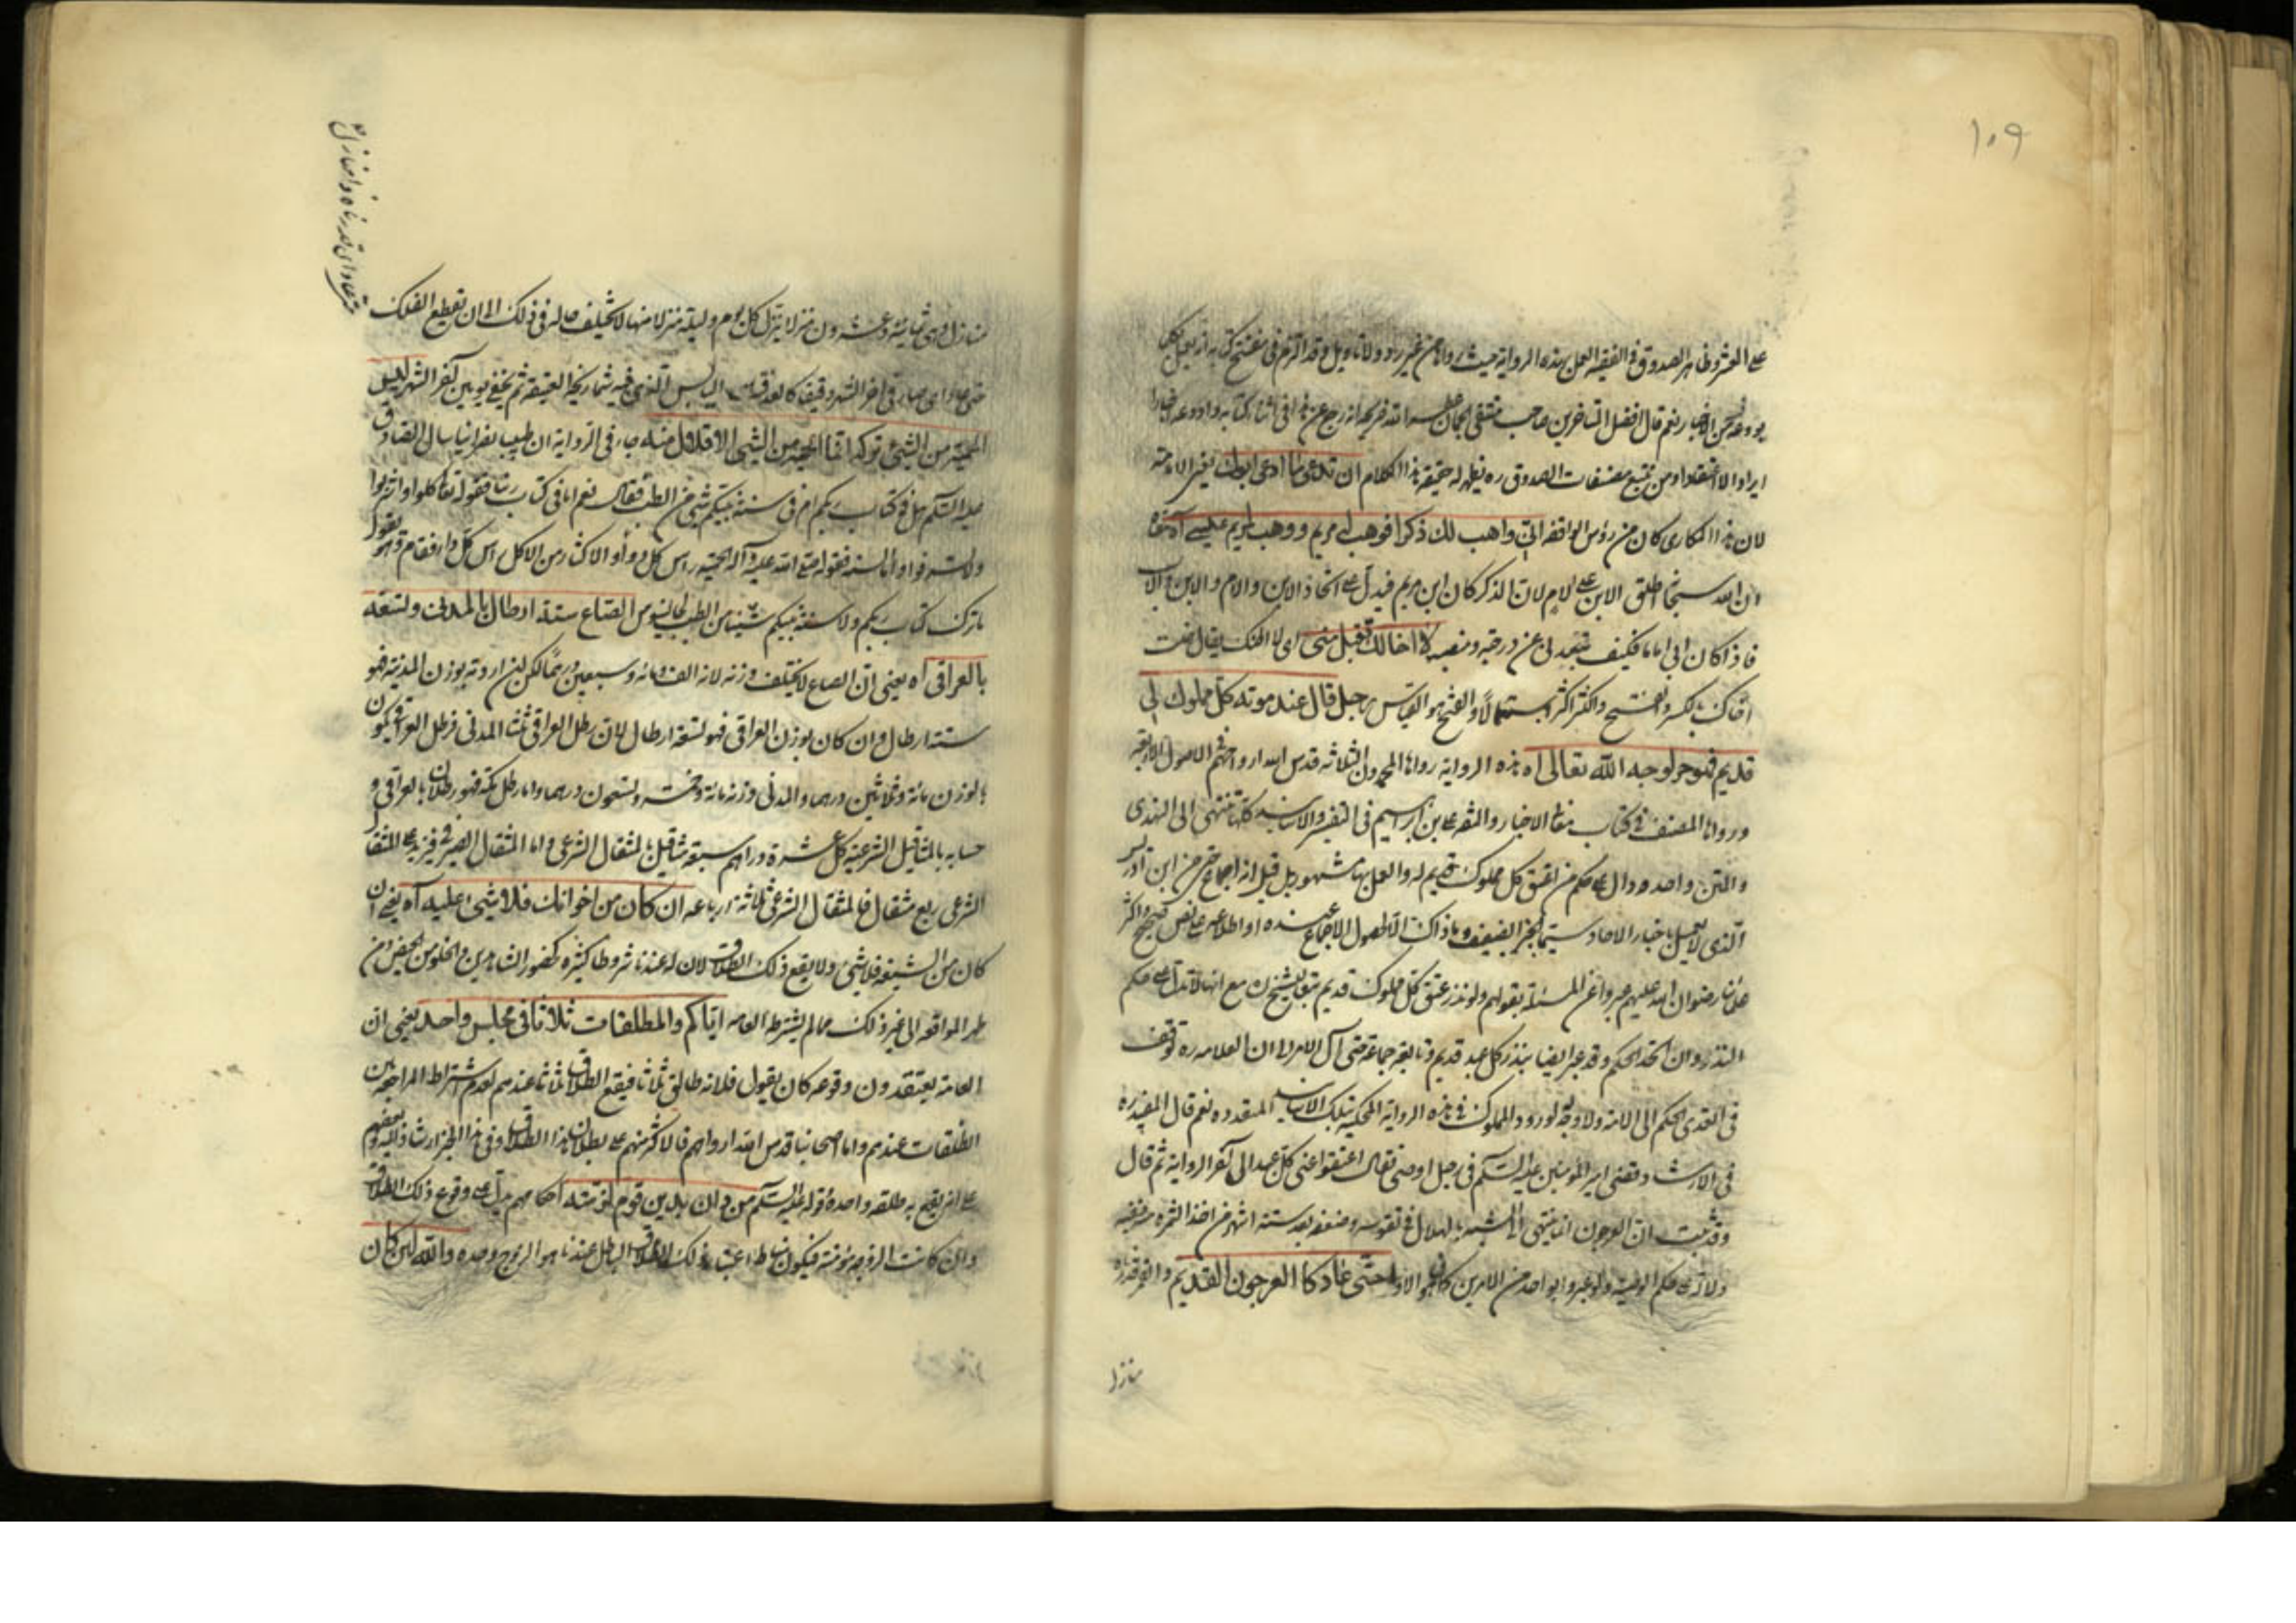 ١٠٩
على العشر وظاهر الصدوق في الفقيه العمل بهذه الرواية حيث رواها من غير رد ولا تأويل وقد التزم في مفتتح كتابه انه يعمل بكلما
يورده من الاخبار نعم قال افضل المتاخرين صاحب منتقى الجمان الله انه رجع عن هذا في اثناء كتابه واودعه اخبارا
ايرادا لا اعتقادا ومن تتبع مصنفات الصدوق ره يظهر له حقيقة هذا الكلام ان تدعى ما ادعى ابوك يعني الامامة
لان هذا المكاري كان من رؤس الواقفة انى واهب لك ذكرا فوهب له مريم ووهب لمريم عيسى آه
ان الله سبحانه اطلق الابن على الام لان الذكر كان ابن مريم فيدل على اتحاد الابن والام والابن والاب
فاذا كان ابي اماما فكيف تبعدني عن درجته ومنصبه لا اخالك تقبل منى اي لا اظنك يقال خلت
اخالك بالكسر والفتح والكسر اكثر استعمالا والفتح هو القياس رجل قال عند موته كل مملوك لي
قديم فهو حر لوجه الله تعالى آه هذه الرواية رواها المحمدون الثلاثة قدس الله ارواحهم في الاصول الاربعة
ورواها المصنف في كتاب معاني الاخبار والثقة على بن ابراهيم في التفسير والاسانيد كلها تنتهي الى النهدي
والمتن واحد ودال على حكم من اعتق كل مملوك قديم له والعمل بها مشهور بل قيل انه اجماع حتى من ابن ادريس
الذي لا يعمل باخبار الاحاد سيما الخبر الضعيف وما ذاك الا لحصول الاجماع عنده او اطلاعه على نص صحيح واكثر
علمائنا رضوان الله عليهم عبروا عن المسئلة بقولهم ولو نذر عتق كل مملوك قديم تبعا للشيخ مع انها لا تدل على حكم
النذر وان اتحد الحكم وقد عبر ايضا بنذر كل عبد قديم وتابعه جماعة حتى آل الامر الى ان العلامة ره توقف
في تعدي الحكم الى الامة ولا وجه له لورود المملوك في هذه الرواية المحكية بتلك الاسانيد المتعددة نعم قال المفيد ره
في الارشاد وقضى امير المؤمنين عليه السلم في رجل اوصى فقال اعتقوا عنى كل عبد الى آخر الرواية ثم قال
وقد ثبت ان العرجون انما ينتهي الى الشبه بالهلال في تقوسه وضعفه بعد ستة اشهر من اخذ الثمرة منه
حكم الوصية من الامرين حتى عاد كالعرجون القديم والقمر قدرناه
منازل
منازل وهي ثمانية وعشرون منزلا ينزل كل يوم وليلة منزلا منها لا يختلف حاله في ذلك الى ان يقطع الفلك
حتى عاد اي صار في اخر الشهر دقيقا كالعذق اليابس الذي فيه شماريخه العتيقة ثم يخفى يومين آخر الشهر ليس
الحمية من الشئ تركه انما الحمية من الشئ الاقلال منه جاء في الرواية ان طبيبا نصرانيا سال الصادق
عليه السلم هل في كتاب ربكم ام في سنة نبيكم شئ من الطب فقال نعم اما في كتاب ربنا فقوله تعالى كلوا واشربوا
ولا تسرفوا واما السنة فقوله صلى الله عليه وآله الحمية راس كل دواء والاكثار من الاكل اس كل داء فقام وهو يقول
ما ترك كتاب ربكم ولا سنة نبيكم شيئا من الطب لجالينوس الصاع ستة ارطال بالمدنى وتسعة
بالعراقى آه يعني ان الصاع لا يختلف وزنه لانه الف ومائة وسبعين درهما لكن ان اردته بوزن المدينة فهو
ستة ارطال وان كان بوزن العراقي فهو تسعة ارطال لان رطل العراقي ثلثا المدني فرطل العراقي يكون
بالوزن مائة وثلاثين درهما والمدني وزنه مائة وخمسة وتسعون درهما واما رطل مكة فهو رطلان بالعراقي و
حسابه بالمثاقيل الشرعية كل عشرة دراهم سبعة مثاقيل بالمثقال الشرعي واما المثقال الصيرفي فيزيد على المثقال
الشرعي ربع مثقال فالمثقال الشرعي ثلاثة ارباعه ان كان من اخوانك فلا شئ عليه آه يعني ان
كان من الشيعة فلا شئ ولا يقع ذلك الطلاق لان له عندنا شروطا كثيرة كحضور الشاهدين والخلو من الحيض ومن
طهر المواقعة الى غير ذلك مما لم يشترطه العامة اياكم والمطلقات ثلاثا في مجلس واحد يعني ان
العامة يعتقدون وقوعه كان يقول فلانة طالق ثلاثا فيقع الطلاق ثلاثا عندهم لعدم اشتراط المراجعة بين
الطلقات عندهم واما اصحابنا قدس الله ارواحهم فالاكثر منهم على بطلان هذا الطلاق وفي هذا الخبر ارشاد اليه وبعضهم
على انه يقع به طلقة واحدة قوله عليه السلم من دان بدين قوم لزمته احكامهم يدل على وقوع ذلك الطلاق
وان كانت الزوجة مؤمنة فيكون مناط اعتبار ذلك الطلاق الباطل عندنا هو الزوج وحده والله لئن كان